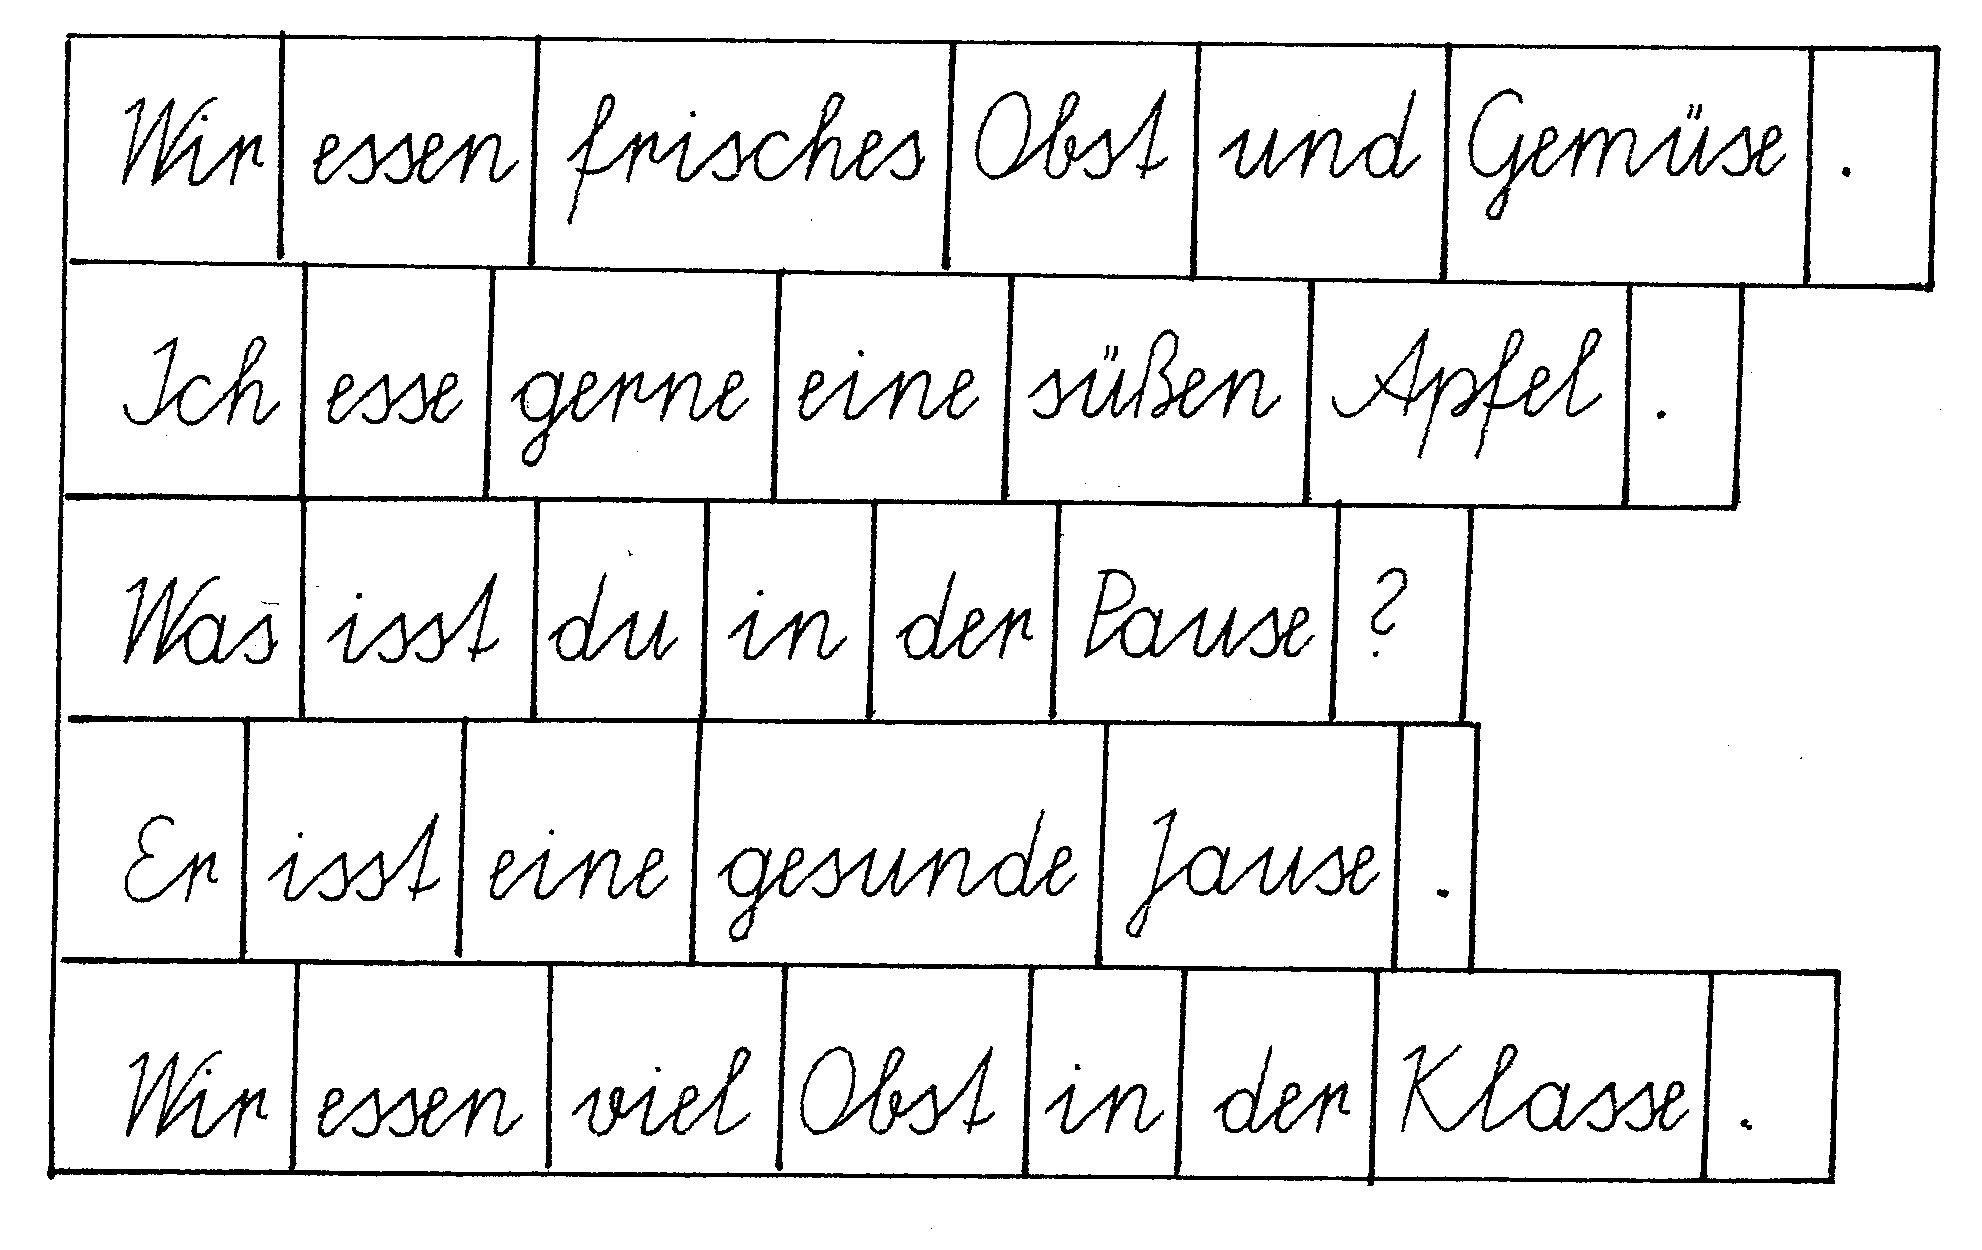 Wir essen frisches Obst und Gemüse .
Ich esse gerne eine süßen Apfel .
Was isst du in der Pause ?
Er isst eine gesunde Jause .
Wir essen viel Obst in der Klasse .